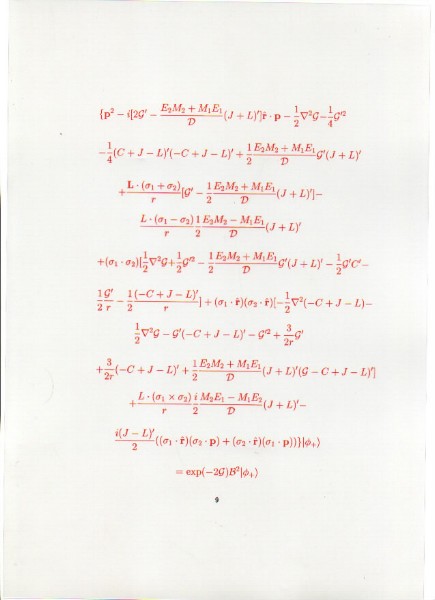 {p² − i[2𝒢′ − (E₂M₂ + M₁E₁)/𝒟 (J + L)′]r̂ · p − 1/2 ∇²𝒢 − 1/4 𝒢′²
−1/4 (C + J − L)′(−C + J − L)′ + 1/2 (E₂M₂ + M₁E₁)/𝒟 𝒢′(J + L)′
+ L · (σ₁ + σ₂)/r [𝒢′ − 1/2 (E₂M₂ + M₁E₁)/𝒟 (J + L)′]−
L · (σ₁ − σ₂)/r 1/2 (E₂M₂ − M₁E₁)/𝒟 (J + L)′
+(σ₁ · σ₂)[1/2 ∇²𝒢 + 1/2 𝒢′² − 1/2 (E₂M₂ + M₁E₁)/𝒟 𝒢′(J + L)′ − 1/2 𝒢′C′−
1/2 𝒢′/r − 1/2 (−C + J − L)′/r] + (σ₁ · r̂)(σ₂ · r̂)[−1/2 ∇²(−C + J − L)−
1/2 ∇²𝒢 − 𝒢′(−C + J − L)′ − 𝒢′² + 3/2r 𝒢′
+ 3/2r (−C + J − L)′ + 1/2 (E₂M₂ + M₁E₁)/𝒟 (J + L)′(𝒢 − C + J − L)′]
+ L · (σ₁ × σ₂)/r i/2 (M₂E₁ − M₁E₂)/𝒟 (J + L)′−
i(J − L)′/2 ((σ₁ · r̂)(σ₂ · p) + (σ₂ · r̂)(σ₁ · p))}|ϕ₊⟩
= exp(−2𝒢)ℬ²|ϕ₊⟩
9